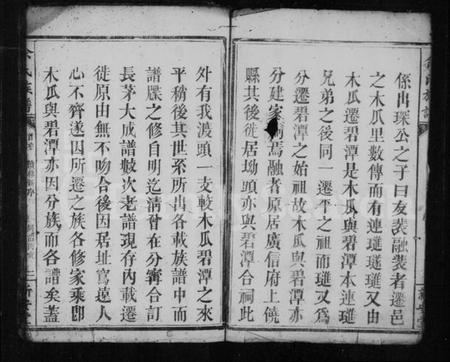 係出琛公之子曰友裝融裝者遷邑
之木瓜里數傳而有連璲璲又由
木瓜遷碧潭是木瓜與碧潭本連璲
兄弟之後同一遷平之祖而璲又爲
分遷碧潭之始祖故木瓜與碧潭亦
分建家祠焉融者原居廣信府上饒
縣其後徙居坳頭亦與碧潭合祠此
外有我渡頭一支較木瓜碧潭之來
平稍後其世系所出各載族譜中而
譜牒之修自明迄清曾在分寗合訂
長茅大成譜數次老譜現存內載遷
徙原由無不吻合後因居址寫遠人
心不齊遂囚所遷之族各修家乘卽
木瓜與碧潭亦因分族而各譜矣蓋